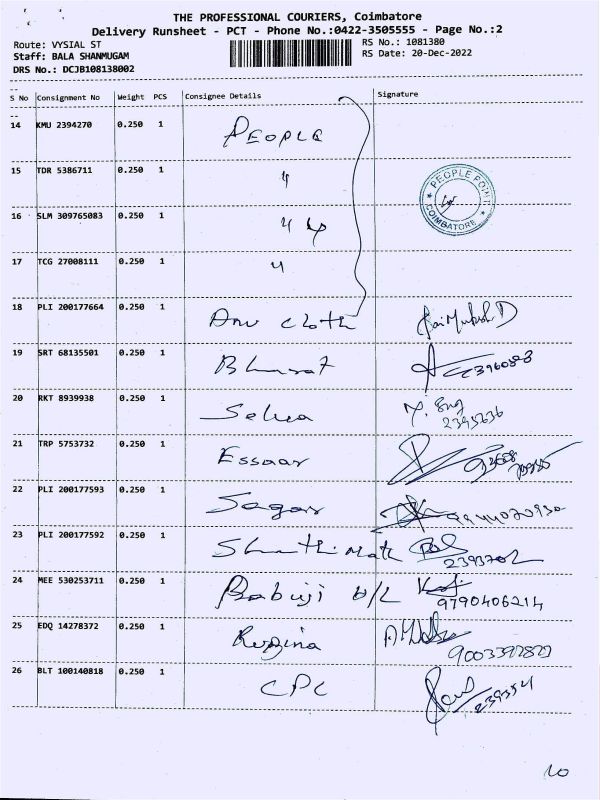 THE PROFESSIONAL COURIERS, Coimbatore
Delivery Runsheet - PCT - Phone No.:0422-3505555 - Page No.:2
Route: VYSIAL ST
RS No.: 1081380
Staff: BALA SHANMUGAM
RS Date: 20-Dec-2022
DRS No.: DCJB108138002
S No Consignment No Weight PCS Consignee Details Signature
14 KMU 2394270 0.250 1 PEOPLE
15 TDR 5386711 0.250 1 "
PEOPLE POINT COIMBATORE
16 SLM 309765083 0.250 1 "
17 TCG 27008111 0.250 1 "
18 PLI 200177664 0.250 1 Anu cloth
19 SRT 68135501 0.250 1 Bharat
20 RKT 8939938 0.250 1 2395636
21 TRP 5753732 0.250 1 Essaar
22 PLI 200177593 0.250 1 Sagar
23 PLI 200177592 0.250 1
24 MEE 530253711 0.250 1 Babuji 9790406214
25 EDQ 14278372 0.250 1
26 BLT 100140818 0.250 1 CPC
10